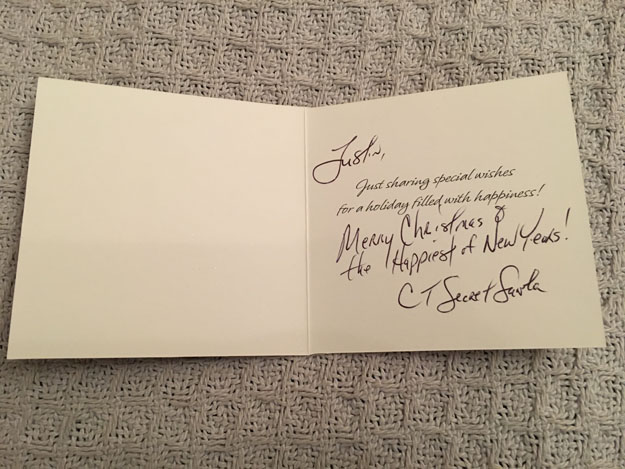 Justin,
Just sharing special wishes
for a holiday filled with happiness!
Merry Christmas &
the Happiest of New Years!
CT Secret Santa